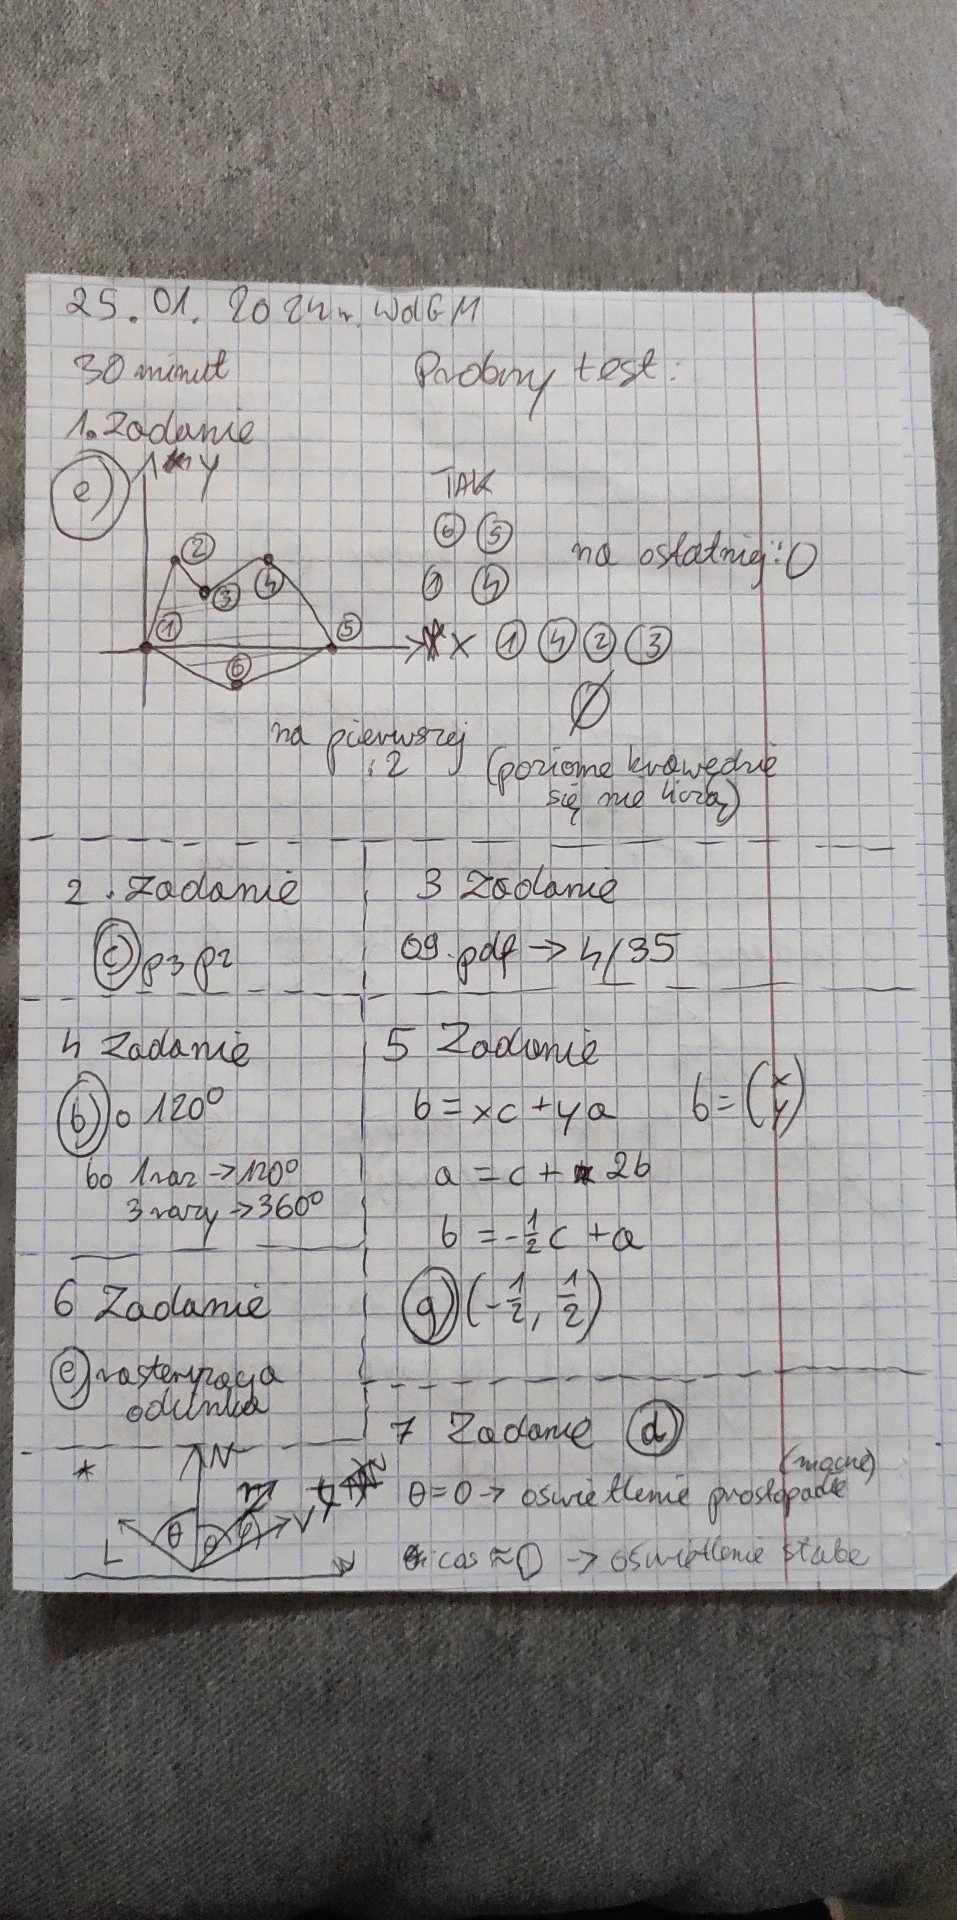 25.01.2024r. WdGM
30 minut
Próbny test:
1. Zadanie
e)
y
TAK
2
3
4
1
5
6
x
6 5
1 4
1 4 2 3
∅
na ostatniej: 0
na pierwszej
: 2
(poziome krawędzie
się nie liczą)
2. Zadanie
c) p3 p2
3 Zadanie
09.pdf → 4/35
4 Zadanie
b) o 120°
bo 1 raz → 120°
3 razy → 360°
5 Zadanie
b = xc + ya
b = (x y)
a = c + 2b
b = -1/2 c + a
a) (-1/2, 1/2)
6 Zadanie
e) rasteryzacja
odcinka
7 Zadanie d
(mocne)
θ = 0 → oświetlenie prostopadłe
cos ≈ 0 → oświetlenie słabe
*
N
L
θ
θ
φ
V